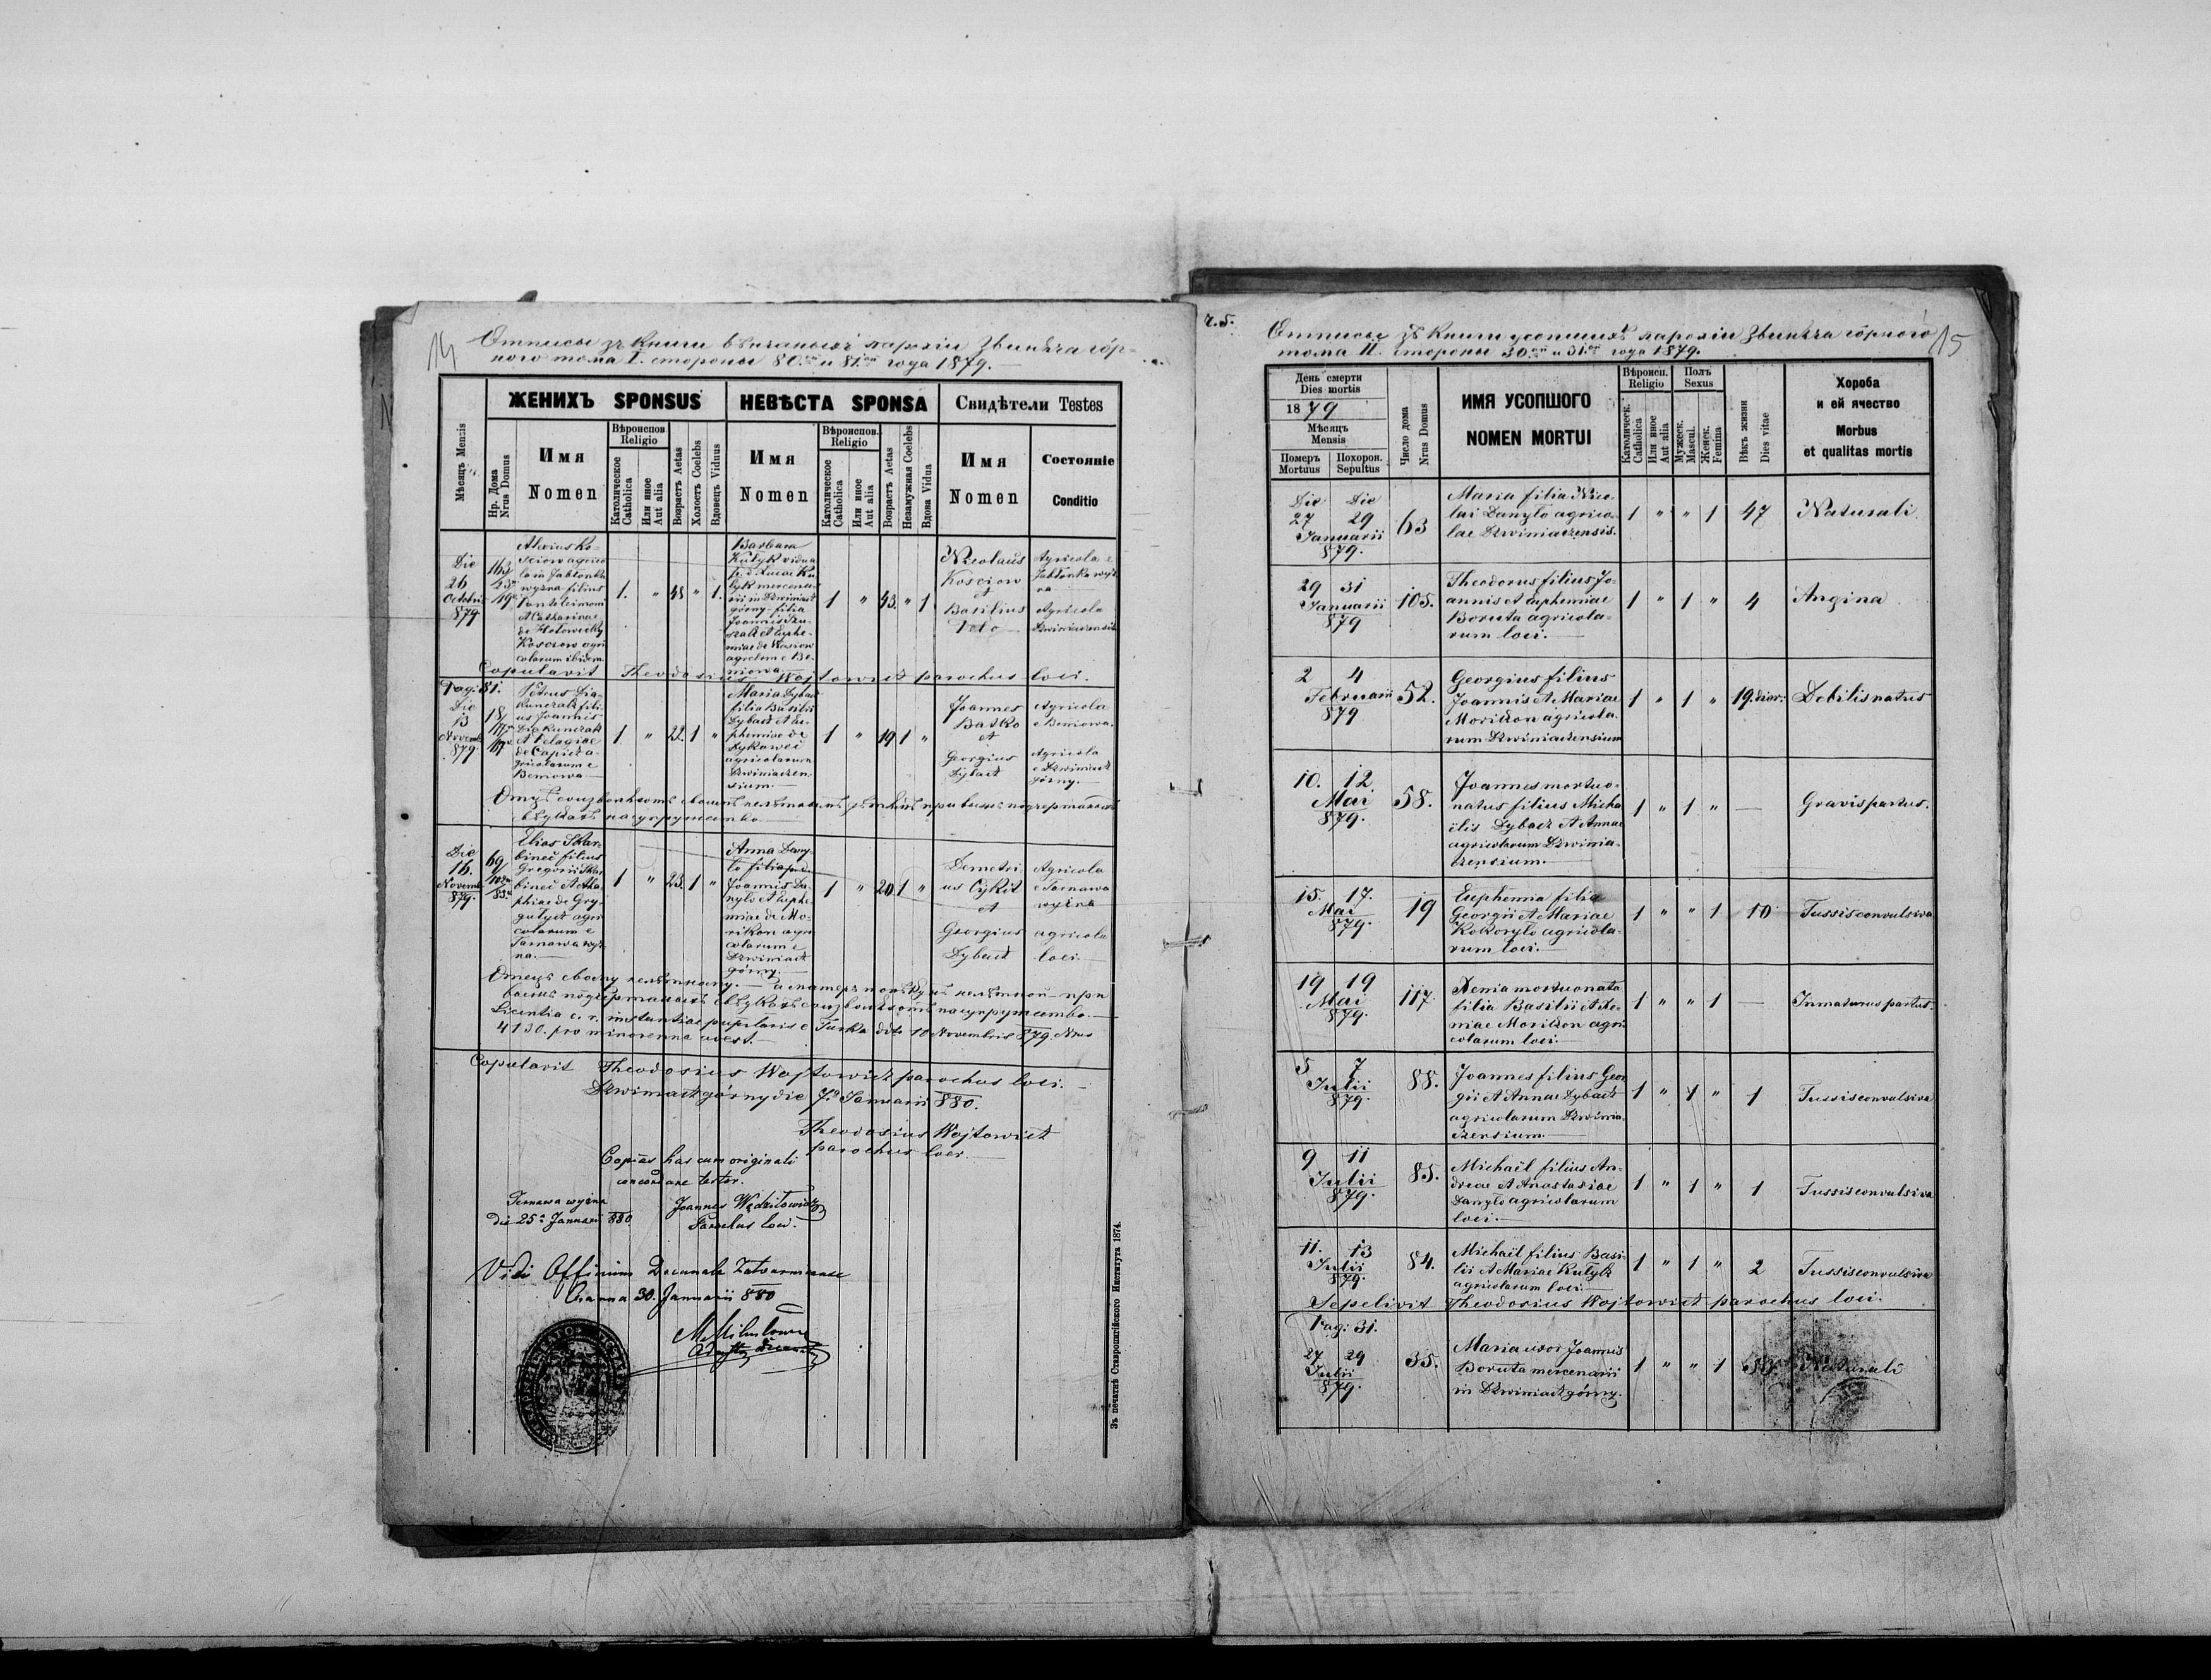 14
Отписы зъ Книги вѣнчаныхъ парохіи Звиняча гôр-
ного тома I. стороны 80.ой и 81.ой года 1879.
Мѣсяцъ Mensis
ЖЕНИХЪ SPONSUS
НЕВѢСТА SPONSA
Свидѣтели Testes
Нр. Дома
Nrus Domus
Имя
Nomen
Вѣроиспов.
Religio
Католическое
Catholica
Или иное
Aut alia
Возрастъ Aetas
Холостъ Coelebs
Вдовецъ Viduus
Имя
Nomen
Вѣроиспов.
Religio
Католическое
Catholica
Или иное
Aut alia
Возрастъ Aetas
Незамужная Coelebs
Вдова Vidua
Имя
Nomen
Состояніе
Conditio
Die
26
Octobris
879
163
23
49
Alexius Ko-
sciow agrico
la in Jabłonka
wyżna filius
Panteleimonis
et Catharinae
de Hołowećky
Kosciow agri
colarum ibidem
1. " 48 " 1.
Barbara
Kułyk vidua
p. d. Lucae Ku
łyk mercena-
rii in Dzwiniacz
górny filia
Joannis
et Euphe-
miae de Kosciow
agricolarum e Be-
niowa
1 " 43. " 1
Nicolaus
Kosciow
et
Basilius
Agricola e
Jabłonka wyż
na
Agricola
Dzwiniaczensis
Copulavit Theodosius Wojtowicz parochus loci.
Pagi: 81.
Die
13
Novemb
879.
18/
Petrus Dia-
kunczak fili-
us Joannis
Diakunczak
et Pelagiae
de
gricolarum e
Beniowa
1 " 22. 1 "
Maria Dybacz
filia Basilii
Dybacz et Eu-
phemiae de
agricolarum
Dzwiniaczen-
sium.
1 " 19 1 "
Joannes
Batko
et
Georgius
Dybacz
Agricola
e Beniowa.
Agricola
e Dzwiniacz
górny.
на супружество.
Die
16.
Novemb
879.
69/
102
83.
Elias Skar-
bineć filius
Gregorii Skar
bineć et Aga-
phiae de Gry-
gulycz agri
colarum e
Tarnawa wyż
na.
1 " 23. 1 "
Anna Dany-
ło filia
Joannis Da
nyło et Euphe-
miae de Mo-
riczon agri
colarum e
Dzwiniacz
górny.
1 " 20 1 "
Demetri
us Cykit
et
Georgius
Dybacz
Agricola
e Tarnawa
wyżna
agricola
loci.
Licentia c. r. instantiae pupilaris e Turka ddto 10 Novembris 879 Nrus
4130. pro minorenne adest.
Copulavit Theodosius Wojtowicz parochus loci.
Dzwiniacz górny die 7a Januarii 880.
Theodosius Wojtowicz
parochus loci.
Copias has cum originali
concordare testor.
Tarnawa wyżna
die 25a Januarii 880
Joannes
Parochus loci.
Vidi Officium Decanale Zatwarnicense
Czarna 30. Januarii 880
Зъ печатнѣ Ставропигійского Института 1874.
ч.5.
15
Отписы зъ Книги усопшихъ парохіи Звиняча гôрного
тома II. стороны 30.ой и 31.ой года 1879.
День смерти
Dies mortis
1879
Мѣсяцъ
Mensis
Померъ
Mortuus
Похорон.
Sepultus
Число дома
Nrus Domus
ИМЯ УСОПШОГО
NOMEN MORTUI
Вѣроисп.
Religio
Католическ.
Catholica
Или иное
Aut alia
Полъ
Sexus
Мужеск.
Mascul.
Женск.
Femina
Вѣкъ жизни
Dies vitae
Хороба
и ей ячество
Morbus
et qualitas mortis
Die Die
27 29
Januarii
879.
63
Maria filia Nico-
lai Danyło agrico-
lae Dzwiniaczensis.
1 " " 1 47 Naturali
29 31
Januarii
879
105.
Theodorus filius Jo-
annis et Euphemiae
Boruta agricola-
rum loci.
1 " 1 " 4 Angina
2 4
Februarii
879
52.
Georgius filius
Joannis et Mariae
Moriczon agricola-
rum Dzwiniaczensium
1 " 1 " 19. dier: Debilis natus
10. 12.
Mai
879.
58.
Joannes mortuo-
natus filius Micha
ëlis Dybacz et Annae
agricolarum Dzwinia-
czensium.
1 " 1 " — Gravis partus.
15. 17.
Mai
879.
19
Euphemia filia
Georgii et Mariae
Kokoryło agricola-
rum loci.
1 " " 1 10 Tussis convulsiva
19 19
Mai
879.
117.
Xenia mortuonata
filia Basilii et Xe-
niae Moriczon agri
colarum loci.
1 " " 1 — Inmaturus partus.
5 7
Julii
879.
88.
Joannes filius Geor
gii et Annae Dybacz
agricolarum Dzwinia-
czensium.
1 " 1 " 1 Tussis convulsiva
9 11
Julii
879.
83.
Michaël filius An-
dreae et Anastasiae
Danyło agricolarum
loci.
1 " 1 " 1 Tussis convulsiva
11. 13
Julii
879.
84.
Michaël filius Basi-
lii et Mariae Kułyk
agricolarum loci.
1 " 1 " 2 Tussis convulsiva
Sepelivit Theodosius Wojtowicz parochus loci.
Pagi: 31.
27 29
Julii
879.
35.
Maria uxor Joannis
Boruta mercenarii
in Dzwiniacz górny.
1 " " 1 Naturali